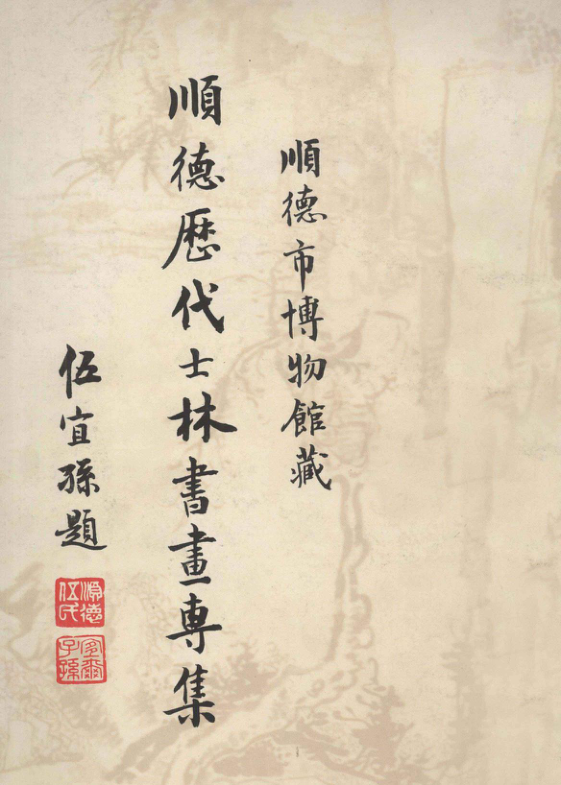 順德市博物館藏
順德歷代士林書畫專集
伍宜孫題
順德伍氏